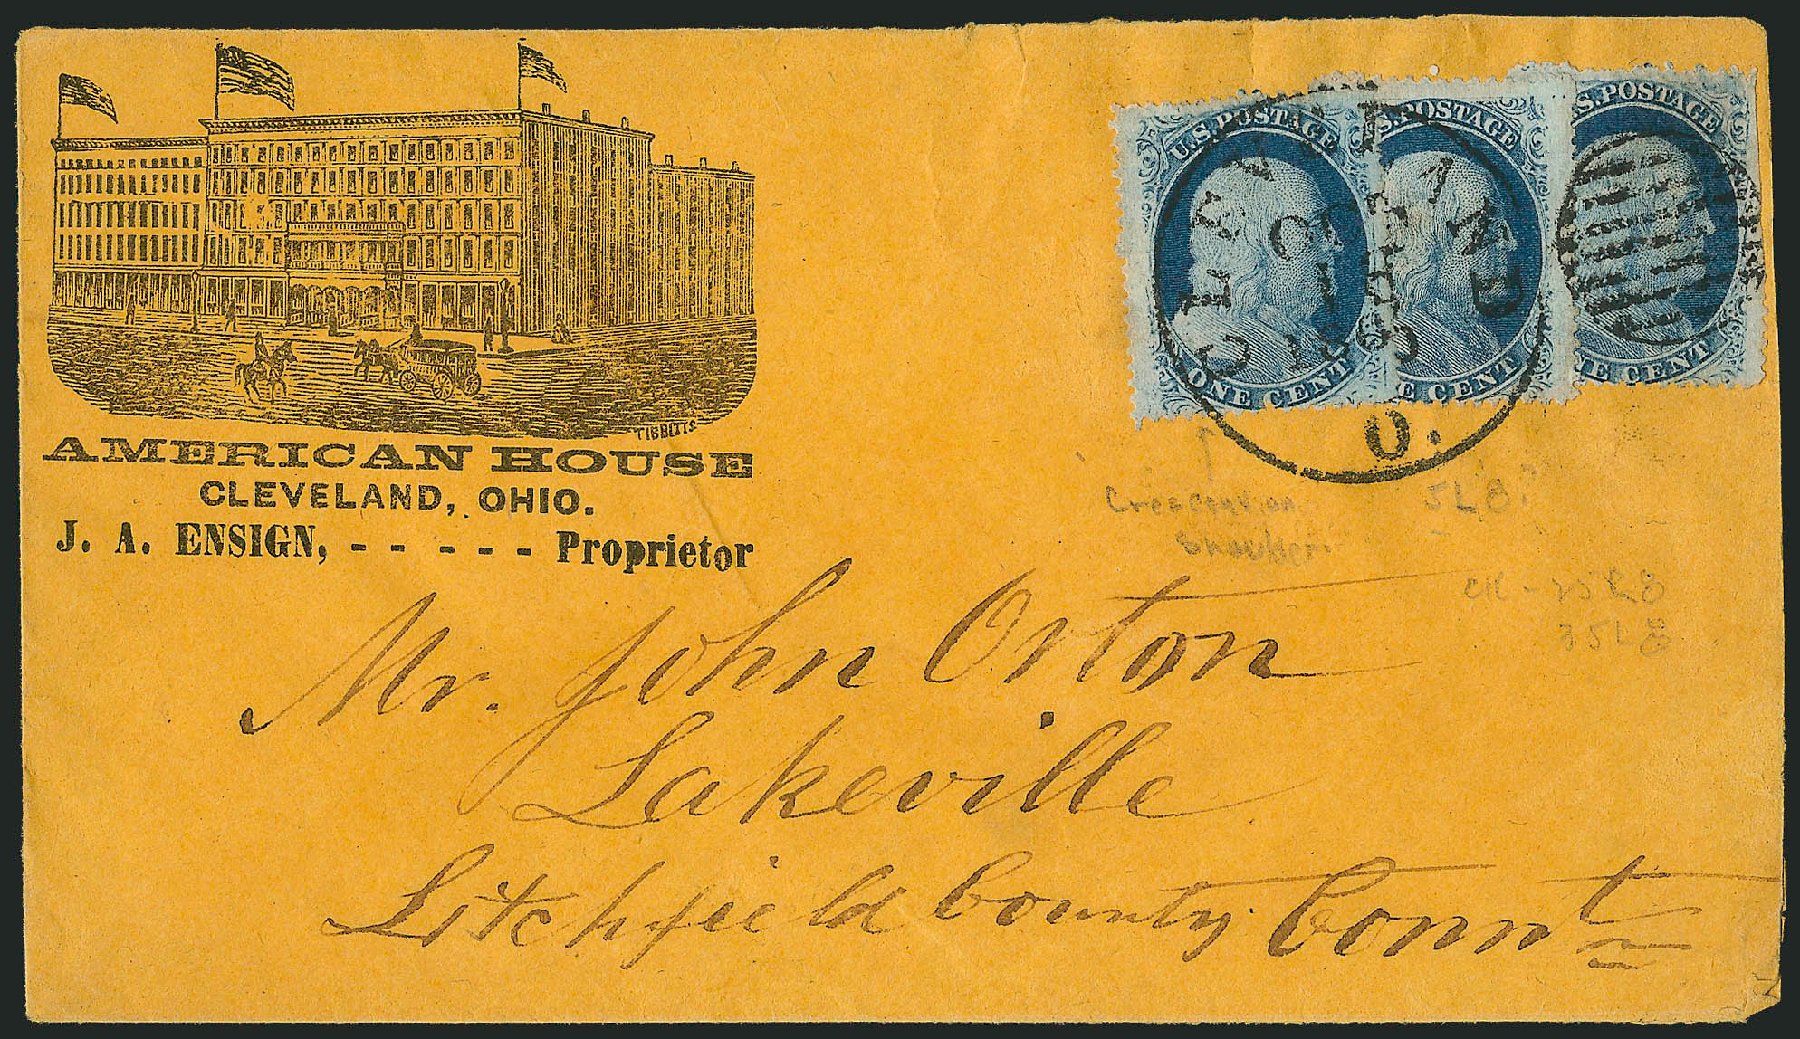 TIBBITTS
AMERICAN HOUSE
CLEVELAND, OHIO.
J. A. ENSIGN, - - - - - Proprietor
U.S. POSTAGE
ONE CENT
S. POSTAGE
E CENT
S. POSTAGE
E CENT
CLEVELAND
OCT
1
1860
O.
Crease on
Shoulder
5L8?
35L8
Mr. John Orton
Lakeville
Litchfield County Connt